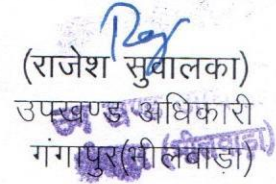 (राजेश सुवालका)
उपखण्ड अधिकारी
गंगापुर(भीलवाड़ा)